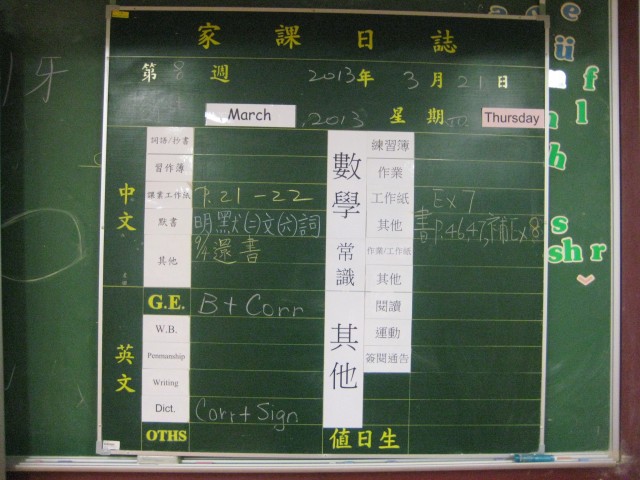 家課日誌
第 8 週 2013年 3月21日
March 2013 星期四 Thursday
中文
詞語/抄書
習作簿
課業工作紙 P.21-22
默書 明默(二)文(六)詞
其他 9/4還書
G.E. B + Corr
英文
W.B.
Penmanship
Writing
Dict. Corr + Sign
OTHS
數學
練習簿
作業
工作紙 Ex 7
其他 書P.46,47,補Ex8
常識
作業/工作紙
其他
其他
閱讀
運動
簽閱通告
值日生
牙
e
ü
f
l
h
s
shr